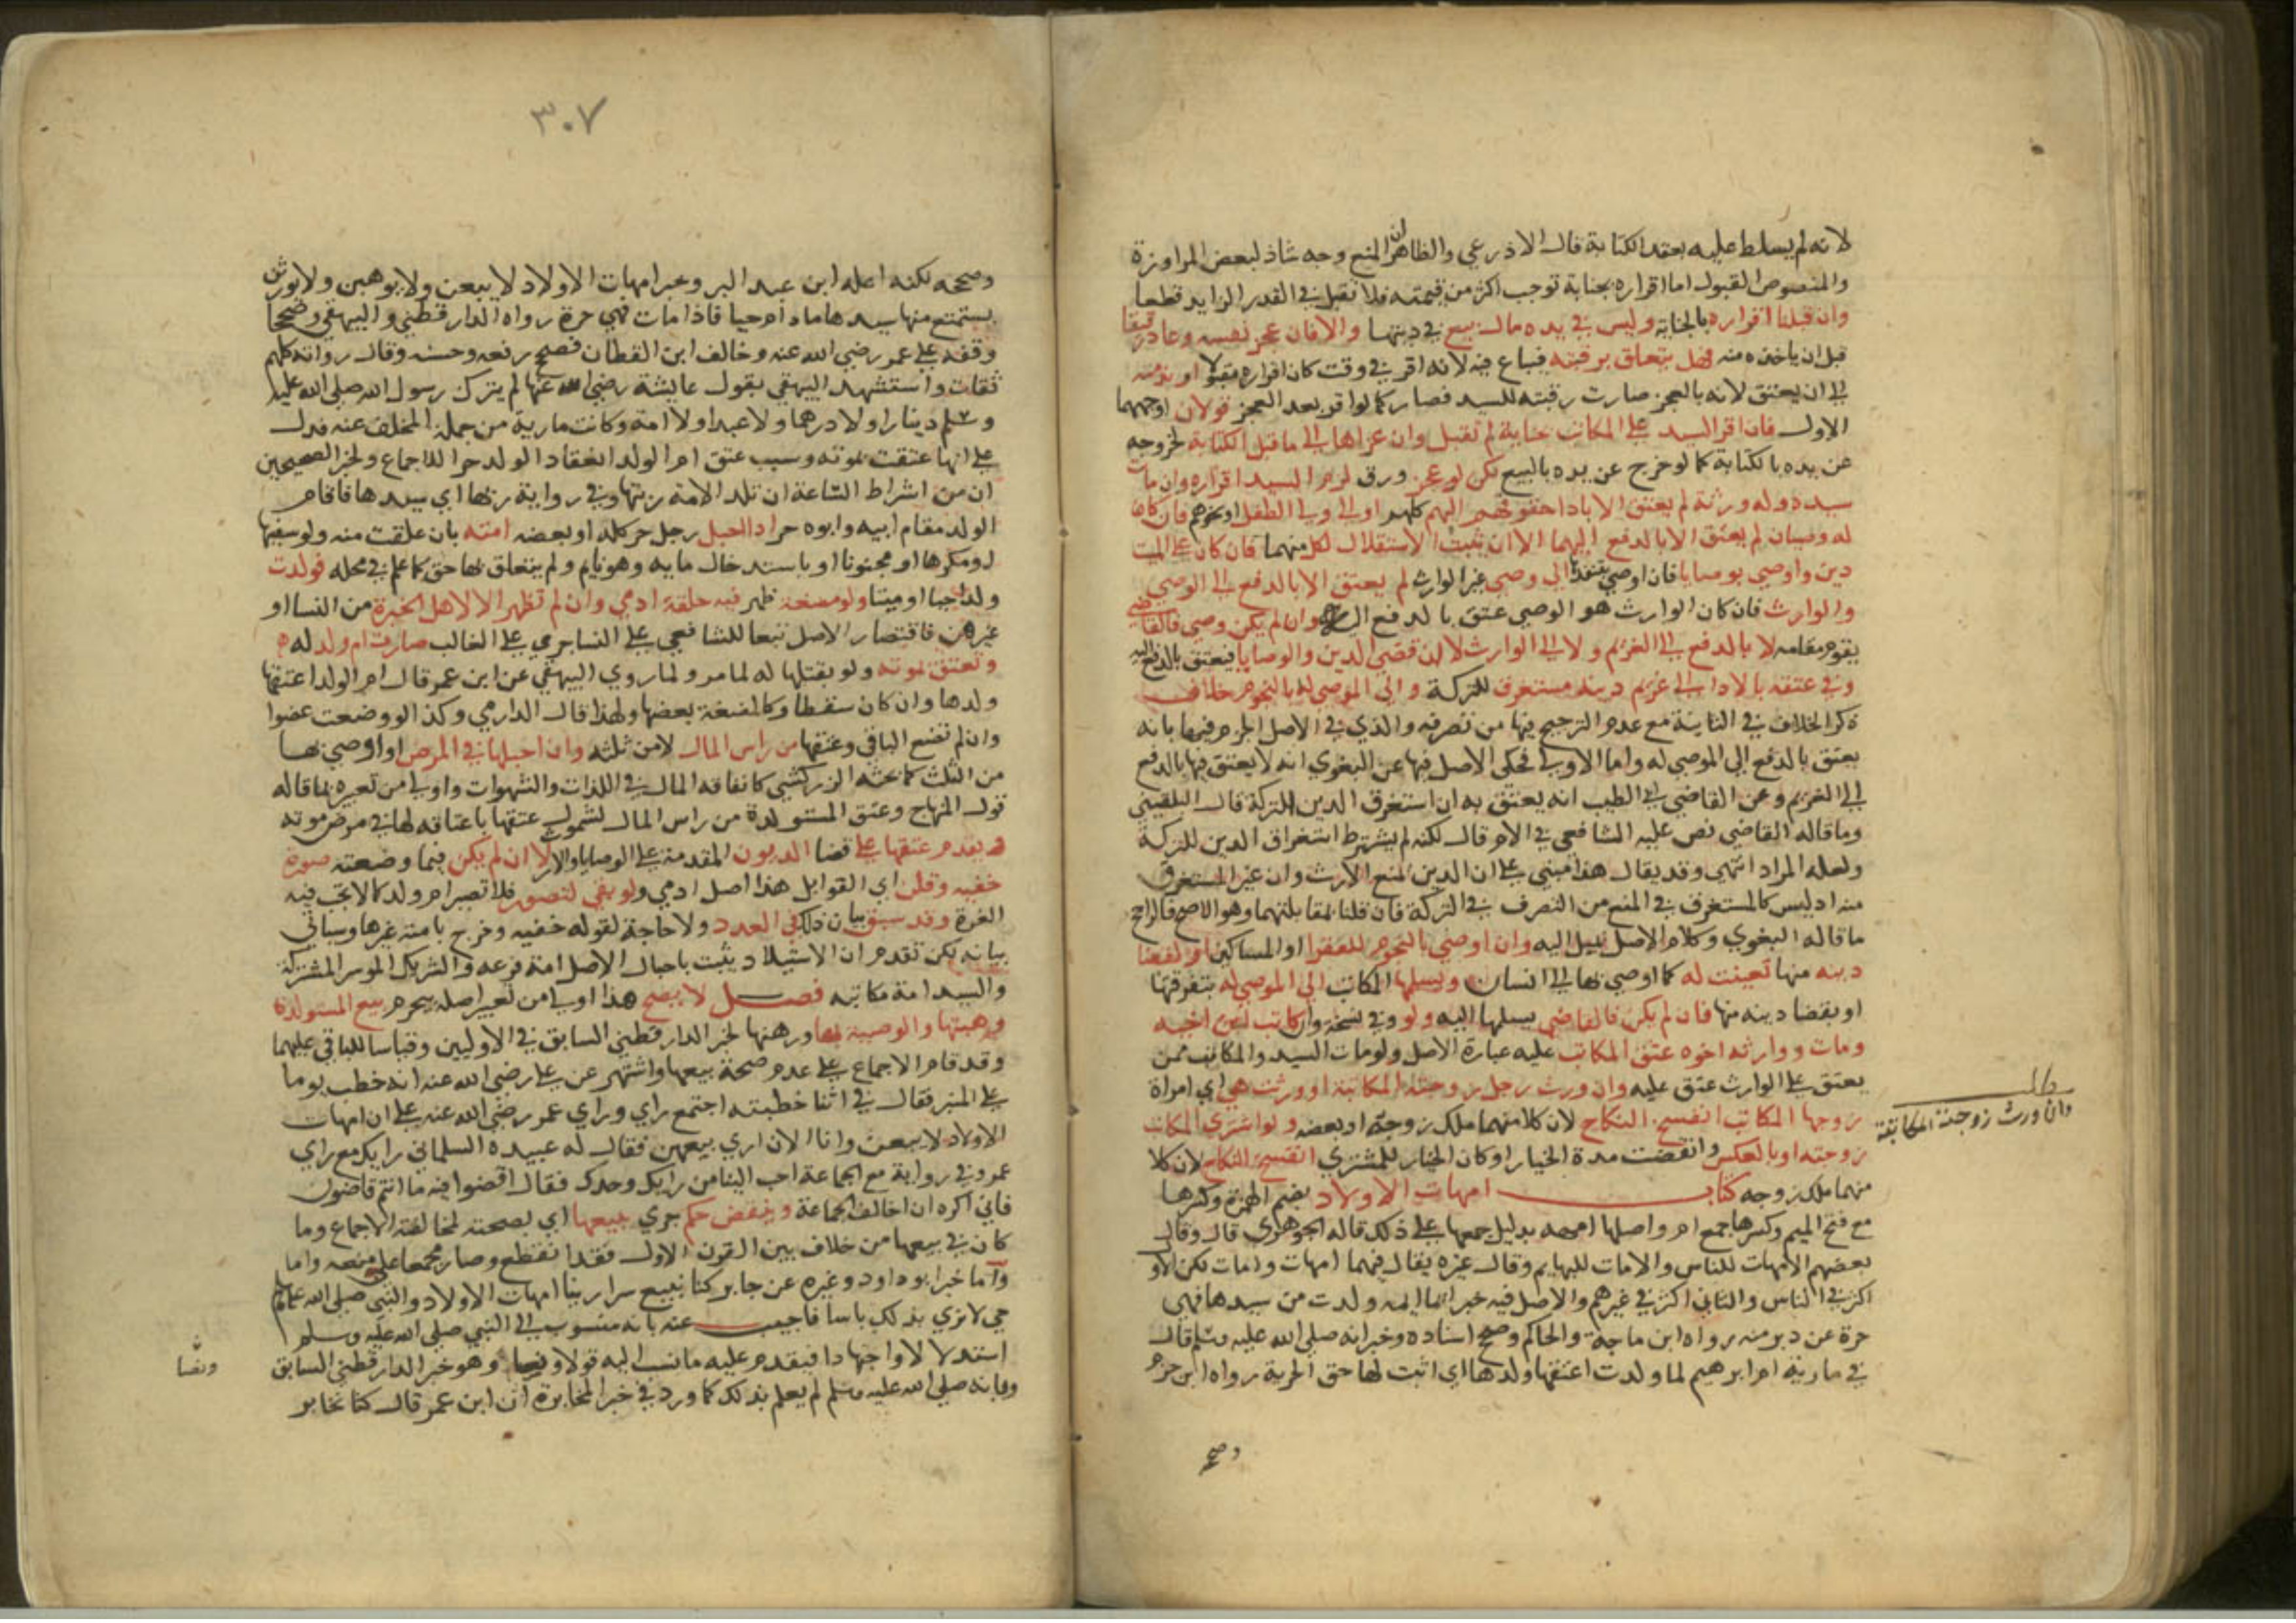 لانه لم يسلط عليه بعقد الكتابة قال الاذرعي والظاهر ان المنع وجه شاذ لبعض المراوزة
والمنصوص القبول اما اقراره بجناية توجب اكثر من قيمته فلا تقبل في القدر الزايد قطعا
وان قبلنا اقراره بالجناية وليس في يده مال بيع في دينها والا فان عجز نفسه وعاد رقيقا
قبل ان ياخذه منه فهل يتعلق برقبته فيباع فيه لانه اقر في وقت كان اقراره مقبولا او بذمته
الى ان يعتق لانه بالعجز صارت رقبته للسيد فصار كما لو اقر بعد العجز قولان اوجههما
الاول فان اقر السيد على المكاتب جناية لم تقبل وان عزاها الى ما قبل الكتابة لخروجه
عن يده بالكتابة كما لو خرج عن يده بالبيع لكن لو عجز ورق لزم السيد اقراره وان مات
سيده وله ورثة لم يعتق الا باداء حقوقهم اليهم كلهم او الى ولي الطفل او نحوهم فان كان
له وصيان لم يعتق الا بالدفع اليهما الا ان يثبت الاستقلال لكل منهما فان كان على الميت
دين واوصى بوصايا فان اوصى بتنفيذها الى وصي غير الوارث لم يعتق الا بالدفع الى الوصي
والوارث فان كان الوارث هو الوصي عتق بالدفع اليه وان لم يكن وصي فالقاضي
يقوم مقامه لا بالدفع الى الغريم ولا الى الوارث لا ان قضى الدين والوصايا فيعتق بالدفع اليه
وفي عتقه بالاداء الى غريم دينه مستغرق للتركة والى الموصى له بالنجوم خلاف
ذكر الخلاف في الثانية مع عدم الترجيح فيها من تصرفه والذي في الاصل الجزم فيها بانه
يعتق بالدفع الى الموصى له واما الاولى فحكى الاصل فيها عن البغوي انه لا يعتق فيها بالدفع
الى الغريم وعن القاضي ابي الطيب انه يعتق به ان استغرق الدين التركة قال البلقيني
وما قاله القاضي نص عليه الشافعي في الام قال لكنه لم يشترط استغراق الدين للتركة
ولعله المراد انتهى وقد يقال هذا مبني على ان الدين يمنع الارث وان غير المستغرق
منه اد ليس كالمستغرق في المنع من التصرف في التركة فان قلنا بمقابلتهما وهو الاصح فالراجح
ما قاله البغوي وكلام الاصل يميل اليه وان اوصى بالنجوم للفقرا او المساكين او لقضا
دينه منها تعينت له كما اوصى بها الى انسان ويسلمها المكاتب الى الموصى له بتفرقتها
او بقضا دينه منها فان لم يكن فالقاضي يسلمها اليه ولو وفي نسخة وان كاتب ابن اخيه
ومات ووارثه اخوه عتق المكاتب عليه عبارة الاصل ولو مات السيد والمكاتب ممن
يعتق على الوارث عتق عليه وان ورث رجل زوجته المكاتبة او ورثت هي اي امراة
زوجها المكاتب انفسخ النكاح لان كلا منهما ملك زوجه او بعضه ولو اشترى المكاتب
زوجته او بالعكس وانقضت مدة الخيار او كان الخيار للمشتري انفسخ النكاح لان كلا
منهما ملك زوجه كتاب امهات الاولاد بضم الهمزة وكسرها
مع فتح الميم وكسرها جمع ام واصلها امهه بدليل جمعها على ذلك قاله الجوهري قال وقال
بعضهم الامهات للناس والامات للبهايم وقال غيره يقال فيهما امهات وامات لكن الاو
اكثر في الناس والثاني اكثر في غيرهم والاصل فيه خبر ايما امة ولدت من سيدها فهي
حرة عن دبر منه رواه ابن ماجة والحاكم وصحح اسناده وخبر انه صلى الله عليه وسلم قال
في مارية ام ابرهيم لما ولدت اعتقها ولدها اي اثبت لها حق الحرية رواه ابن حزم
وصح
مطلب
وان ورث زوجته المكاتبة
٣٠٧
وصححه لكنه اعله ابن عبد البر وخبر امهات الاولاد لا يبعن ولا يوهبن ولا يورثن
يستمتع منها سيدها ما دام حيا فاذا مات فهي حرة رواه الدارقطني والبيهقي وصححا
وقفه على عمر رضي الله عنه وخالف ابن القطان فصحح رفعه وحسنه وقال رواته كلهم
ثقات واستشهد البيهقي بقول عايشة رضي الله عنها لم يترك رسول الله صلى الله عليه
وسلم دينارا ولا درهما ولا عبدا ولا امة وكانت مارية من جملة المخلف عنه فدل
على انها عتقت بموته وسبب عتق ام الولد انعقاد الولد حرا للاجماع ولخبر الصحيحين
ان من اشراط الساعة ان تلد الامة ربتها وفي رواية ربها اي سيدها فاقام
الولد مقام ابيه وابوه حر اذا احبل رجل حر كله او بعضه امته بان علقت منه ولو سفيها
او مكرها او مجنونا او باستدخال مايه وهو نايم ولم يتعلق بها حق كما علم في محله فولدت
ولدا حيا او ميتا ولو مضغة ظهر فيه خلقة ادمي وان لم تظهر الا لاهل الخبرة من النسا او
غيرهن فاقتصار الاصل تبعا للشافعي على النسا جري على الغالب صارت ام ولد له
وتعتق بموته ولو بقتلها له لما مر ولما روي البيهقي عن ابن عمر قال ام الولد اعتقها
ولدها وان كان سقطا وكالمضغة بعضها ولهذا قال الدارمي وكذا لو وضعت عضوا
وان لم تضع الباقي وعتقها من راس المال لا من ثلثه وان احبلها في المرض او اوصى بها
من الثلث كما بحثه الزركشي كانفاقه المال في اللذات والشهوات واولى من تعبيره بما قاله
قول المنهاج وعتق المستولدة من راس المال لشموله عتقها باعتاقه لها في مرض موته
ويقدم عتقها على قضا الديون المقدمة على الوصايا والارث لا ان لم يكن فيما وضعته صورة
خفيه وقلن اي القوابل هذا اصل ادمي ولو بقي لتصور فلا تصير ام ولد كما لا تجب فيه
الغرة وقد سبق بيان ذلك في العدد ولا حاجة لقوله خفيه وخرج بامته غيرها وسياتي
بيانه لكن تقدم ان الاستيلاد يثبت باحبال الاصل امة فرعه والشريك الموسر المشتركة
والسيد امة مكاتبه فصل لا يصح هذا اولى من تعبير اصله بيحرم بيع المستولدة
وهبتها والوصية بها ورهنها لخبر الدارقطني السابق في الاوليين وقياسا للباقي عليهما
وقد قام الاجماع على عدم صحة بيعها واشتهر عن علي رضي الله عنه انه خطب يوما
على المنبر فقال في اثنا خطبته اجتمع رايي وراي عمر رضي الله عنه على ان امهات
الاولاد لا يبعن وانا الان اري بيعهن فقال له عبيده السلماني رايك مع راي
عمر وفي رواية مع الجماعة احب الينا من رايك وحدك فقال اقضوا فيه ما انتم قاضون
فاني اكره ان اخالف الجماعة وينقض حكم جري ببيعها اي بصحته لمخالفته الاجماع وما
كان في بيعها من خلاف بين القرون الاول فقد انقطع وصار مجمعا على منعه واما
واما خبر ابو داود وغيره عن جابر كنا نبيع سرارينا امهات الاولاد والنبي صلى الله عليه وسلم
حي لا نري بذلك باسا فاجيب عنه بانه منسوب الى النبي صلى الله عليه وسلم
استدلالا واجتهادا فيقدم عليه ما نسب اليه قولا ونصا وهو خبر الدارقطني السابق
وبانه صلى الله عليه وسلم لم يعلم بذلك كما ورد في خبر المخابرة ان ابن عمر قال كنا نخابر
ونصا